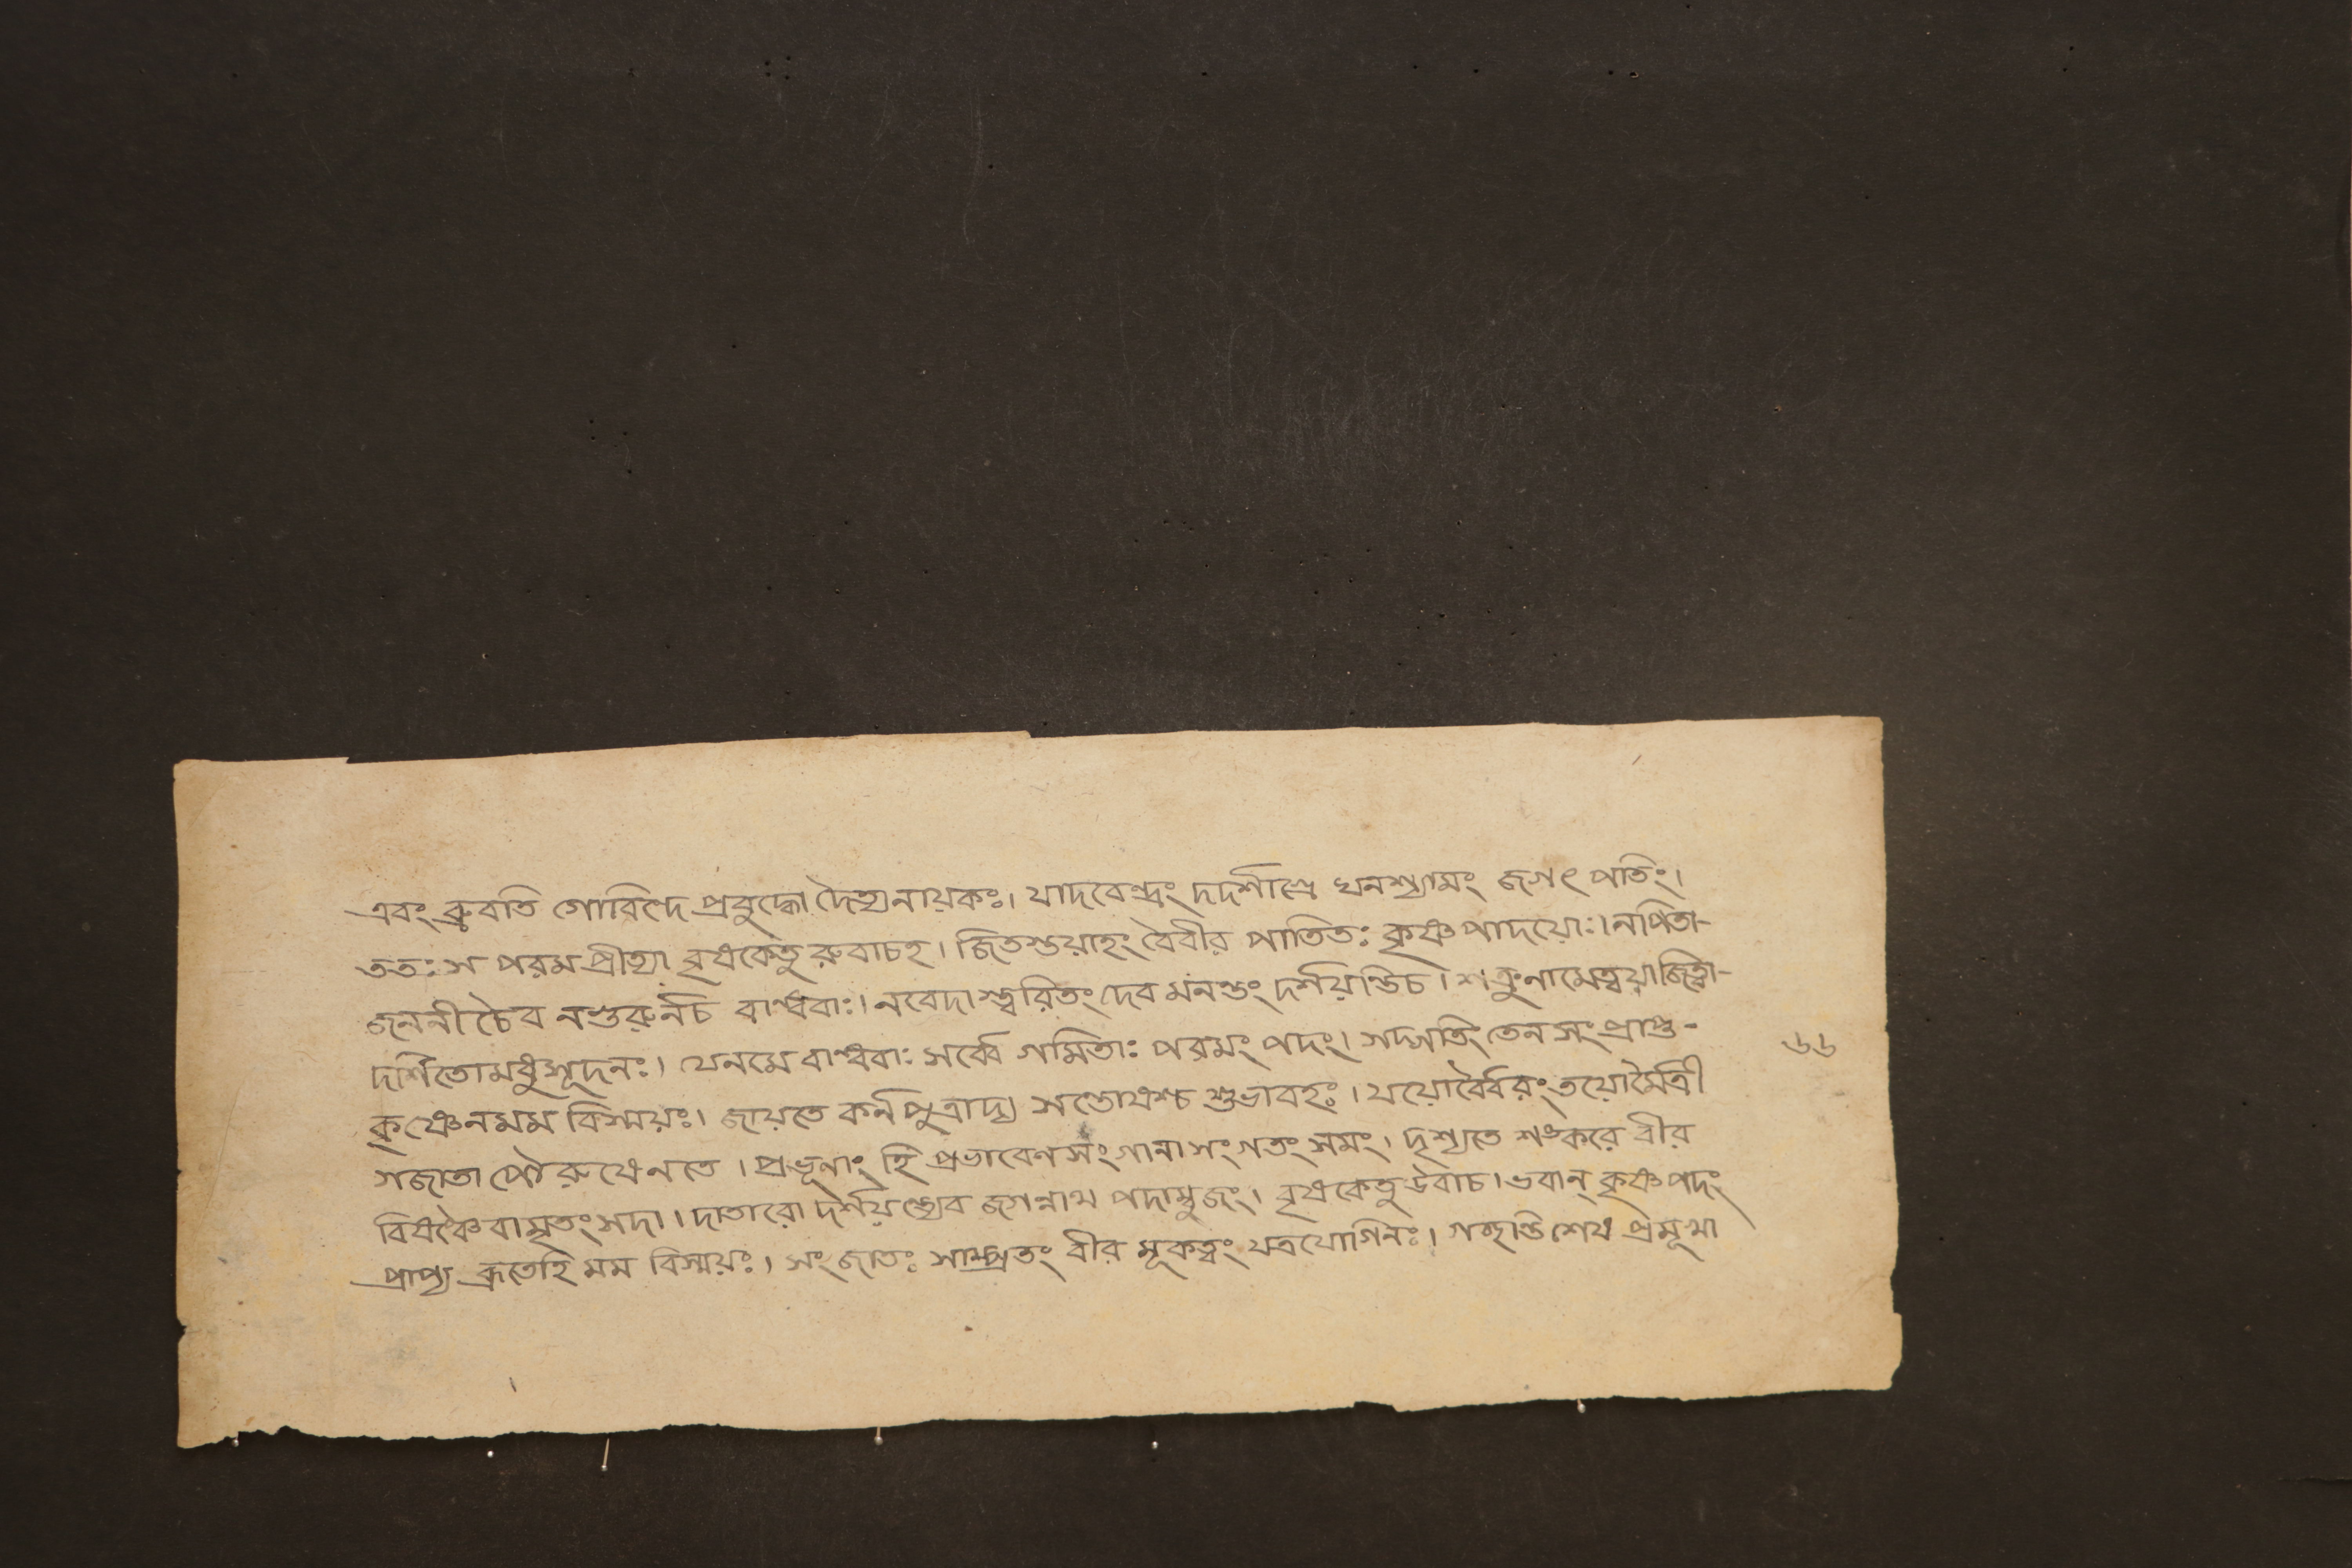 এবং ব্রুবতি গোবিন্দে প্রবুদ্ধো দৈত্যনায়কঃ। যাদবেন্দ্রং দদর্শাগ্রে ঘনশ্যামং জগৎ পতিং।
ততঃ স পরমপ্রীত্যা বৃষকেতু রুবাচহ। জিতস্ত্বয়াহং বৈবীর পাতিতঃ কৃষ্ণ পাদয়োঃ। নপিতা-
জননী চৈব নগুরুর্নচ বান্ধবাঃ। নবেদা স্ত্বরিতং দেব মনন্তং দর্শয়ন্তিচ। শত্রুনামেত্বয়াজিত্বা-
দর্শিতোমধুসূদনঃ। যেনমে বান্ধবাঃ সর্ব্বে গমিতাঃ পরমং পদং। সদ্গতিং তেন সংপ্রাপ্ত-
কৃষ্ণেনমম বিস্ময়ঃ। জায়তে কর্নপুত্রাদ্য সন্তোষশ্চ শুভাবহঃ। যয়োর্বৈরং তয়োর্মৈত্রী
সজাতা পৌরুষেনতে। প্রভূনাং হি প্রভাবেণ সংগানা সংগতং সমং। দৃশ্যতে শঙ্করে বীর
বিষঞ্চৈ বামৃতং সদা। দাতারো দর্শয়ন্ত্যেব জগন্নাথ পদাম্বুজং। বৃষকেতু উবাচ। ভবান্ কৃষ্ণপদং
প্রাপ্য ব্রূতেহি মম বিস্ময়ঃ। সংজাতঃ সাম্প্রতং বীর মূকত্বং যত্রযোগিনঃ। গচ্ছন্তি শেষ প্রমূখা
৬৬